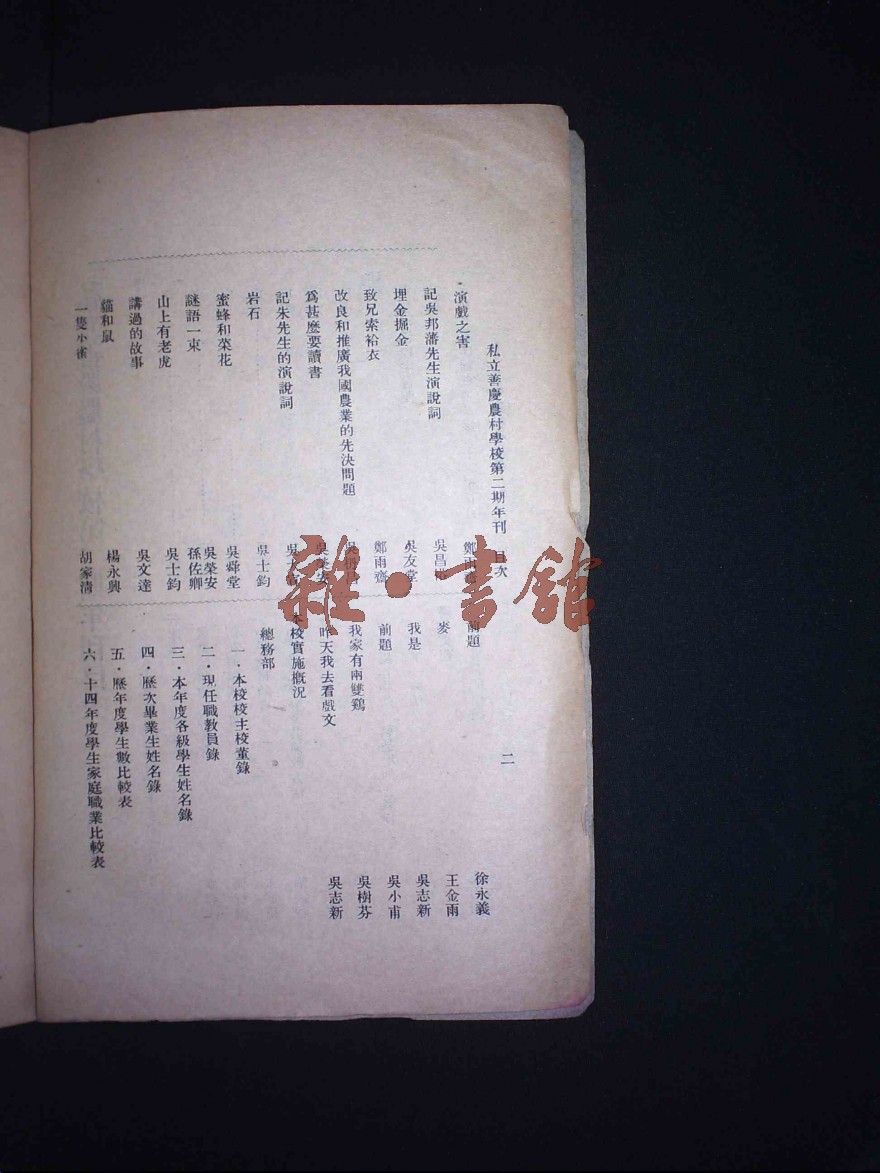 私立善慶農村學校第二期年刊　目次
二
演戲之害　鄭雨
記吳邦藩先生演說詞　吳昌
埋金掘金　吳友堂
致兄索袷衣　鄭雨齋
改良和推廣我國農業的先決問題
爲甚麼要讀書　吳榮安
記朱先生的演說詞　吳
岩石　吳士鈞
蜜蜂和菜花　吳舜堂
謎語一束　吳榮安　孫佐卿
山上有老虎　吳士鈞
講過的故事　吳文達
貓和鼠　楊永興
一隻小雀　胡家清
前題　徐永義
麥　王金雨
我是　吳志新
前題　吳小甫
我家有兩雙鷄　吳樹芬
昨天我去看戲文　吳志新
本校實施概況
總務部
一・本校校主校董錄
二・現任職教員錄
三・本年度各級學生姓名錄
四・歷次畢業生姓名錄
五・歷年度學生數比較表
六・十四年度學生家庭職業比較表
雜・書館